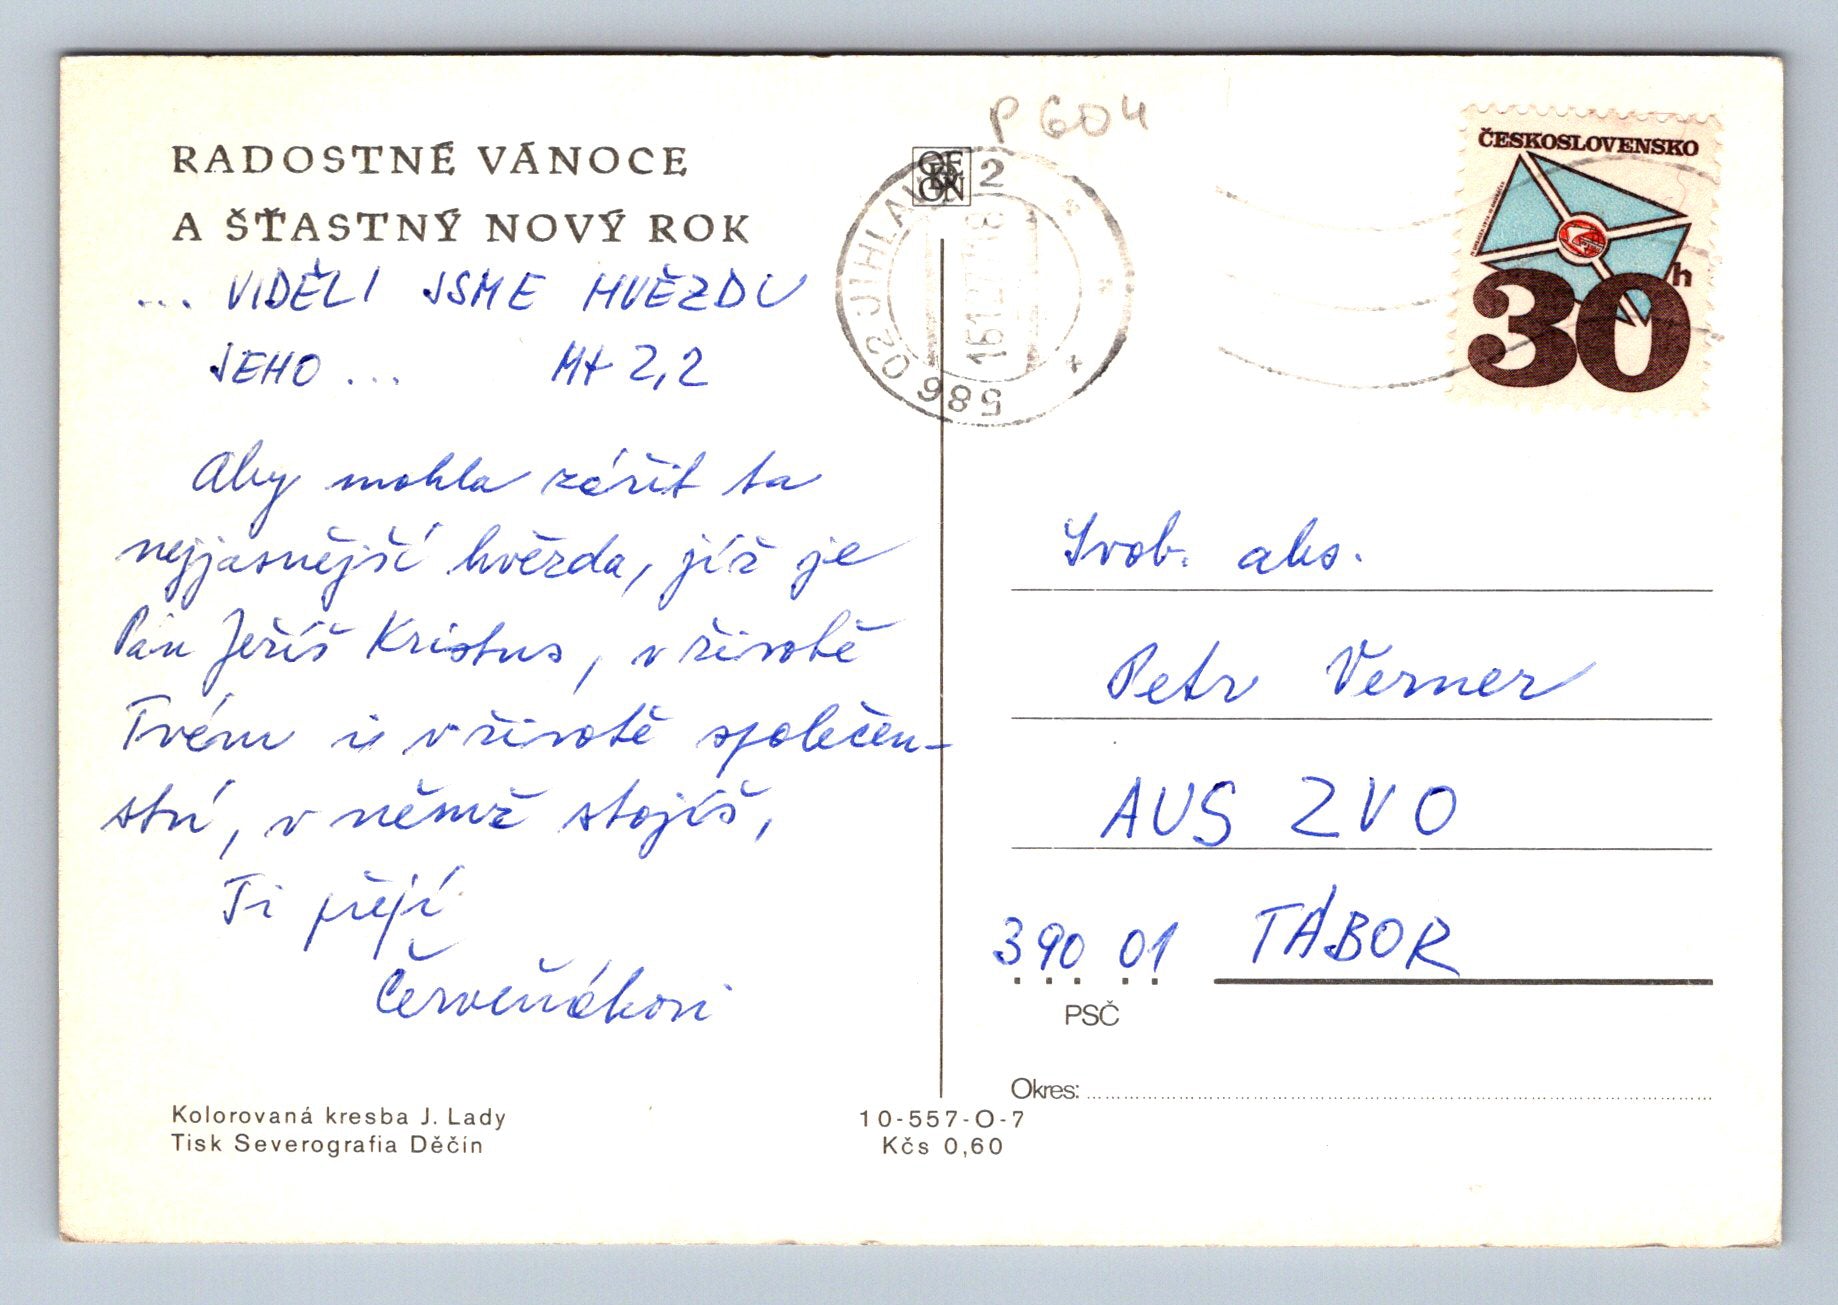 RADOSTNÉ VÁNOCE
A ŠŤASTNÝ NOVÝ ROK
... VIDĚLI JSME HVĚZDU
JEHO ... Mt 2,2
Aby mohla zářit ta
nejjasnější hvězda, jíž je
Pán Ježíš Kristus, v životě
Tvém i v životě společen-
ství, v němž stojíš,
Ti přejí
Červeňákovi
Kolorovaná kresba J. Lady
Tisk Severografia Děčín
10-557-O-7
Kčs 0,60
P 604
ODEON
586 02 JIHLAVA 2
ČESKOSLOVENSKO
30h
Svob. abs.
Petr Verner
AUS ZVO
390 01 TÁBOR
PSČ
Okres: